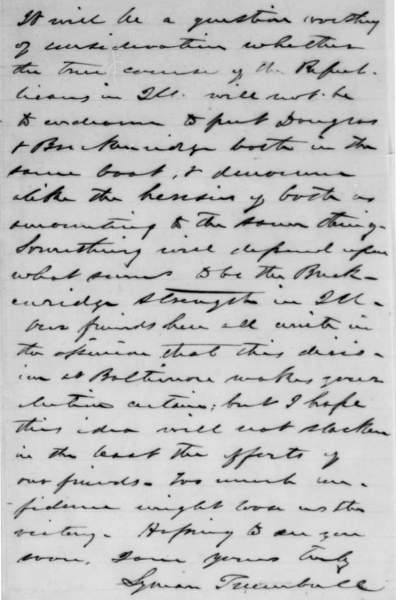 It will be a question worthy
of consideration whether
the true course of the Repub-
licans in Ill. will not be
to endeavor to put Douglas
& Breckenridge both in the
same boat, & denounce
alike the heresies of both as
amounting to the same thing.
Something will depend upon
what seems to be the Breck-
enridge strength in Ill.
Our friends here all unite in
the opinion that this divis-
ion at Baltimore makes your
election certain; but I hope
this idea will not slacken
in the least the efforts of
our friends. Too much con-
fidence might loose us the
victory. Hoping to see you
soon, I am yours truly
Lyman Trumbull